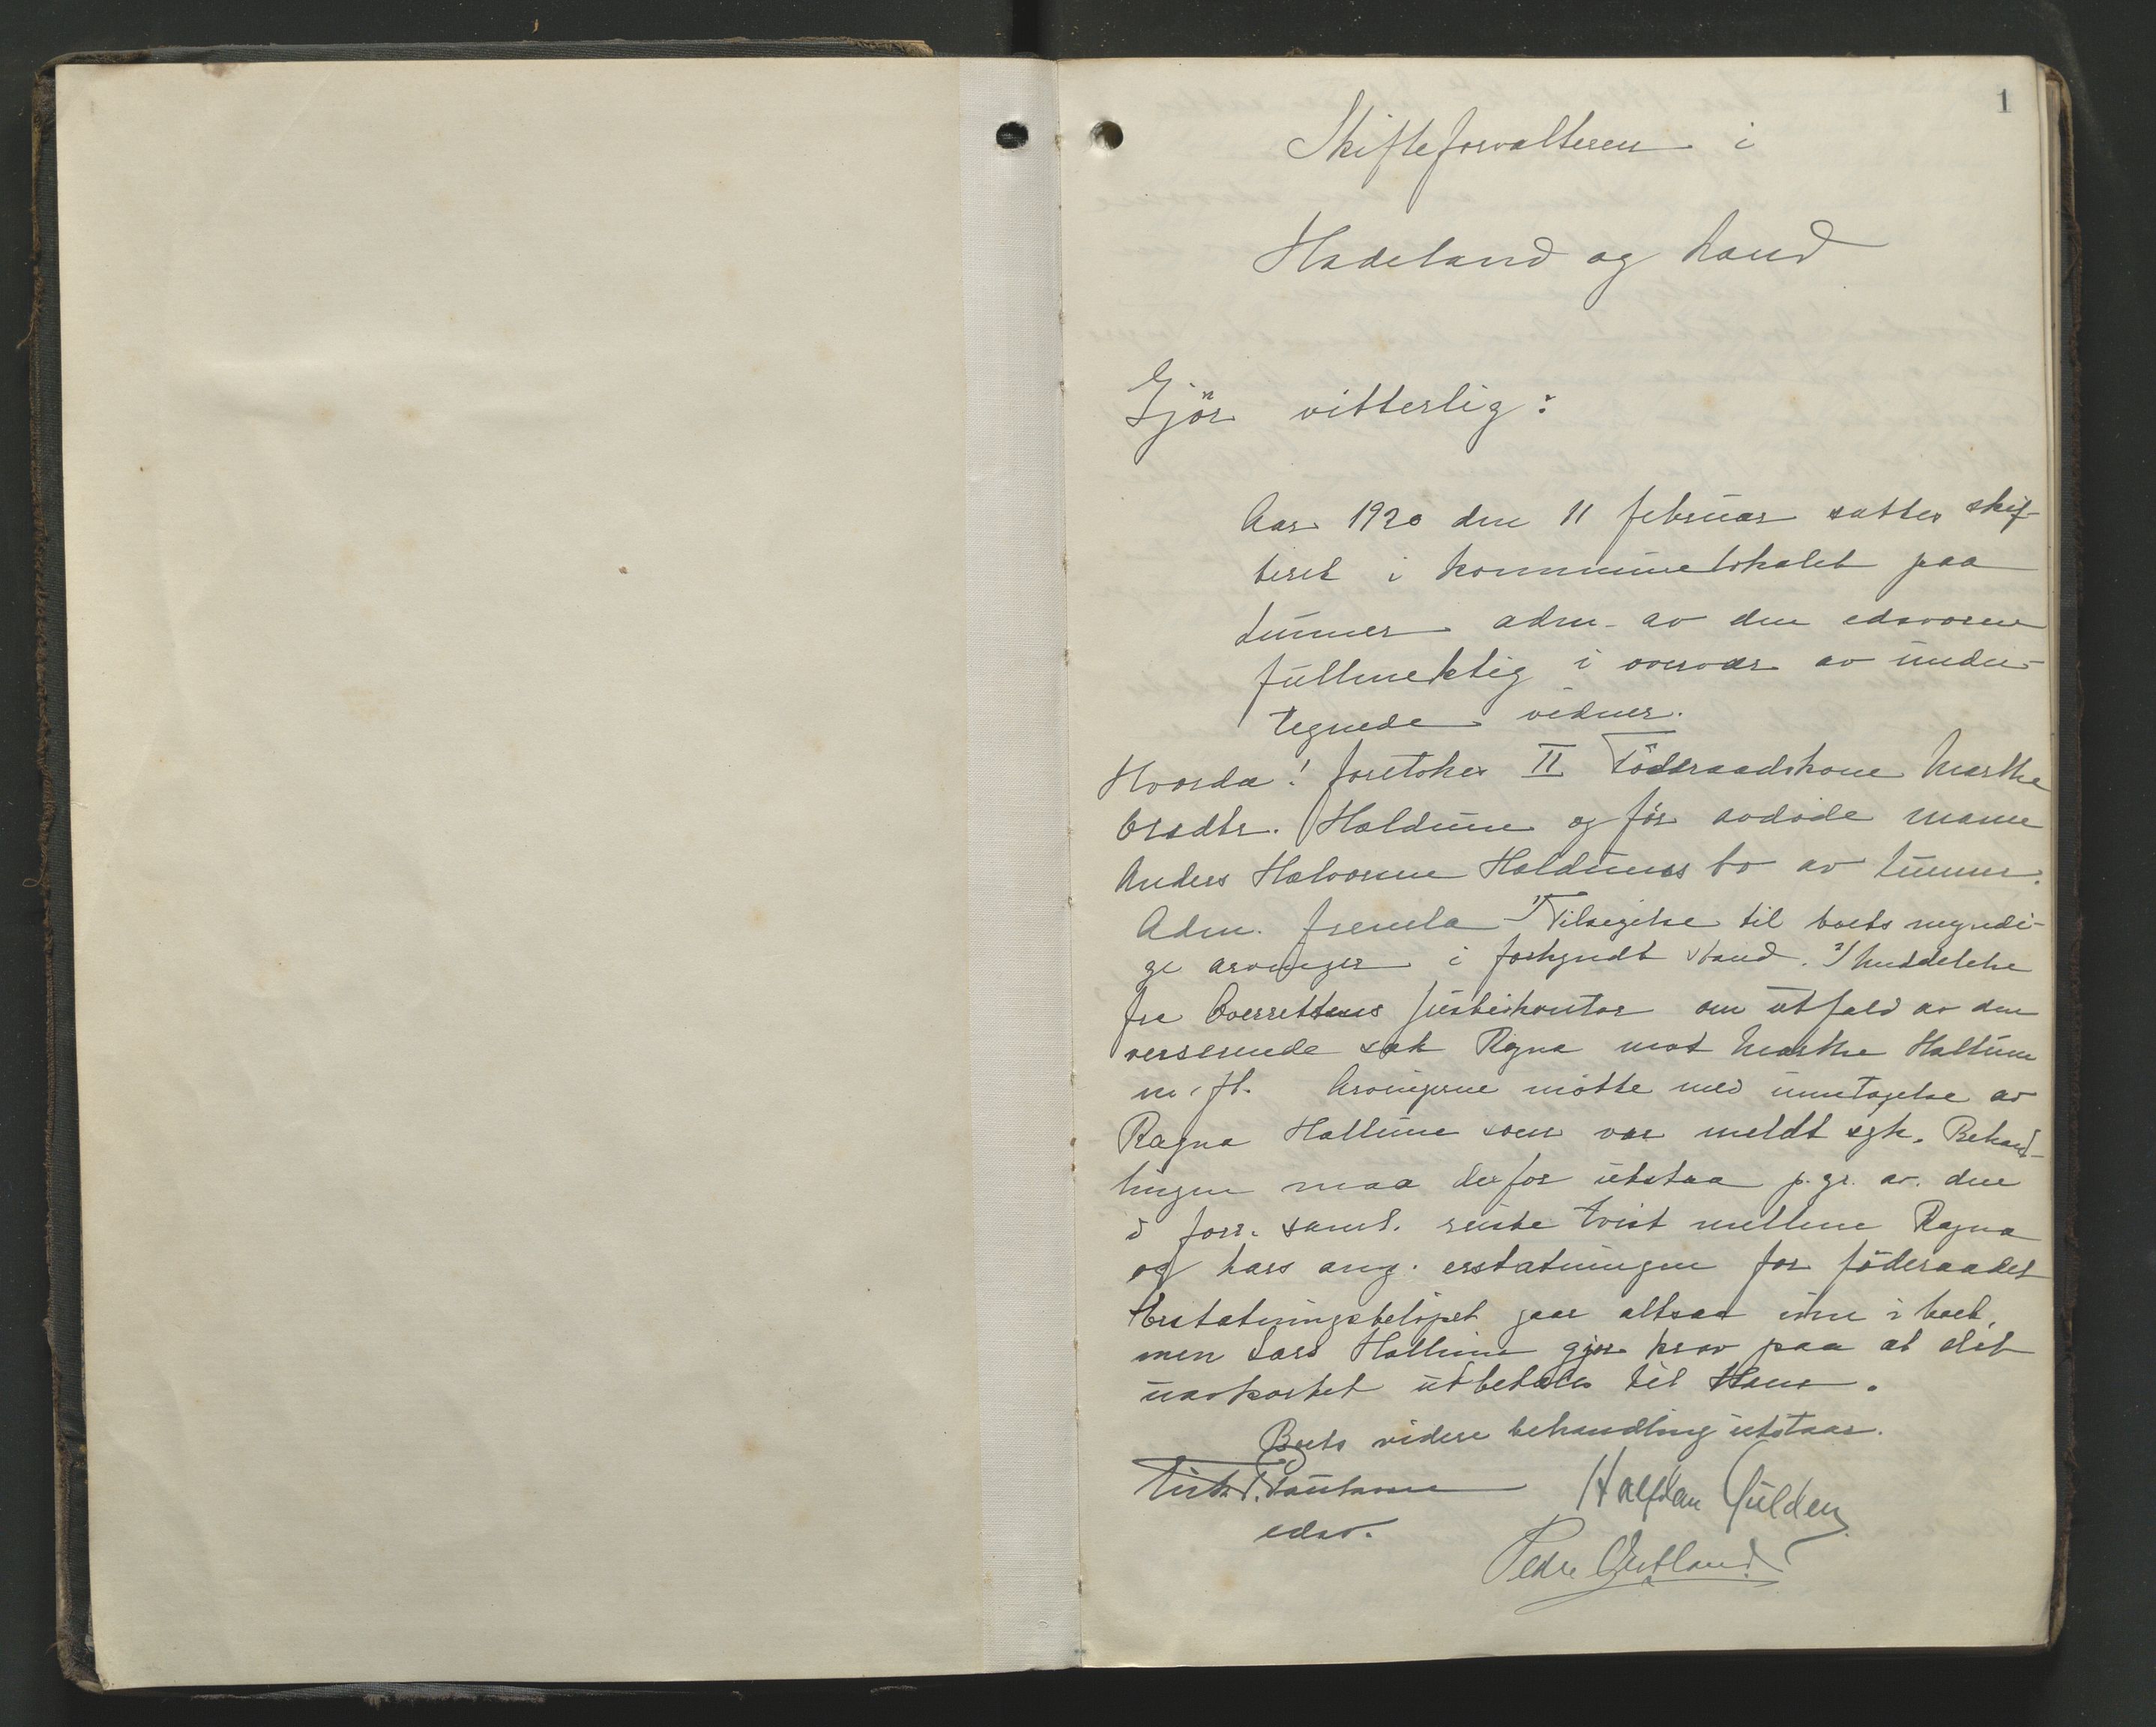 1
Skifteforvalteren i
Hadeland og Land
Gjör vitterlig:
Aar 1920 den 11 februar sattes skif-
teret i kommunelokalet paa
Lunner adm. av den edsvorne
fuldmektig i overvær av under-
tegnede vidner.
Hvorda! foretokes II Föderaadskone Marthe
Ersdtr. Haldum og för avdöde mann
Anders Halvorsen Haldums bo av Lunner.
Adm. fremla 1) Tilsigelse til boets myndi-
ge arvinger i forkyndt stand. 2) Meddelelse
fra Overrettens justiskontor om utfald av den
verserende sak Ragna mot Marthe Hallum
m. fl. Arvingerne mötte med unntagelse av
Ragna Hallum som var meldt syk. Behand-
lingen maa derfor utstaa p. gr. av den
i forr. saml. reiste tvist mellem Ragna
og Lars ang. erstatningen for föderaadet
Erstatningsbelöpet gaar altsaa inn i boet,
men Lars Hallum gjør krav paa at det
uavkortet utbetales til Ham.
Boets videre behandling utstaar.
Halfdan Gulden
edsv.
Peder